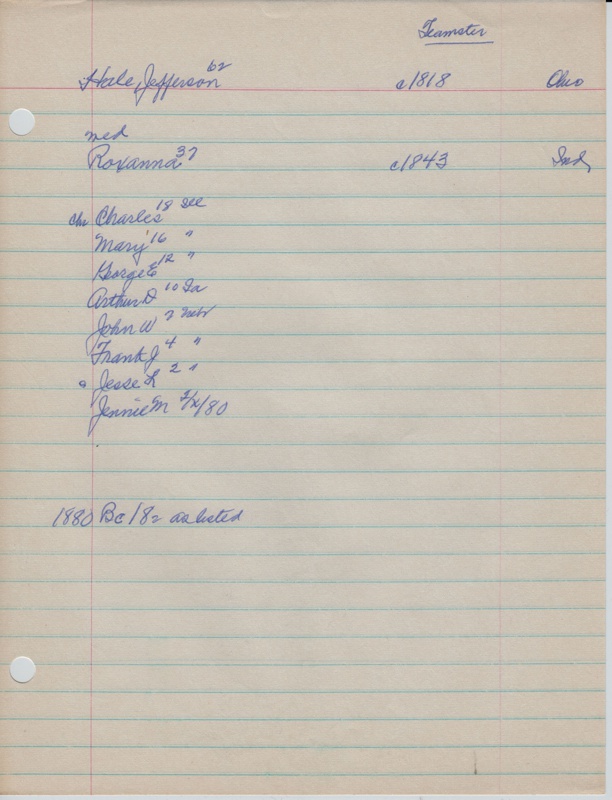 Teamster
Hale, Jefferson 62 c1818 Ohio
med
Roxanna 37 c1843 Ind,
chr Charles 18 Ill
Mary 16 "
George E 12 "
Arthur D 10 Ia
John W 7 Nebr
Frank J 4 "
Jesse L 2 "
Jennie M /80
1880 Bc 182 as listed